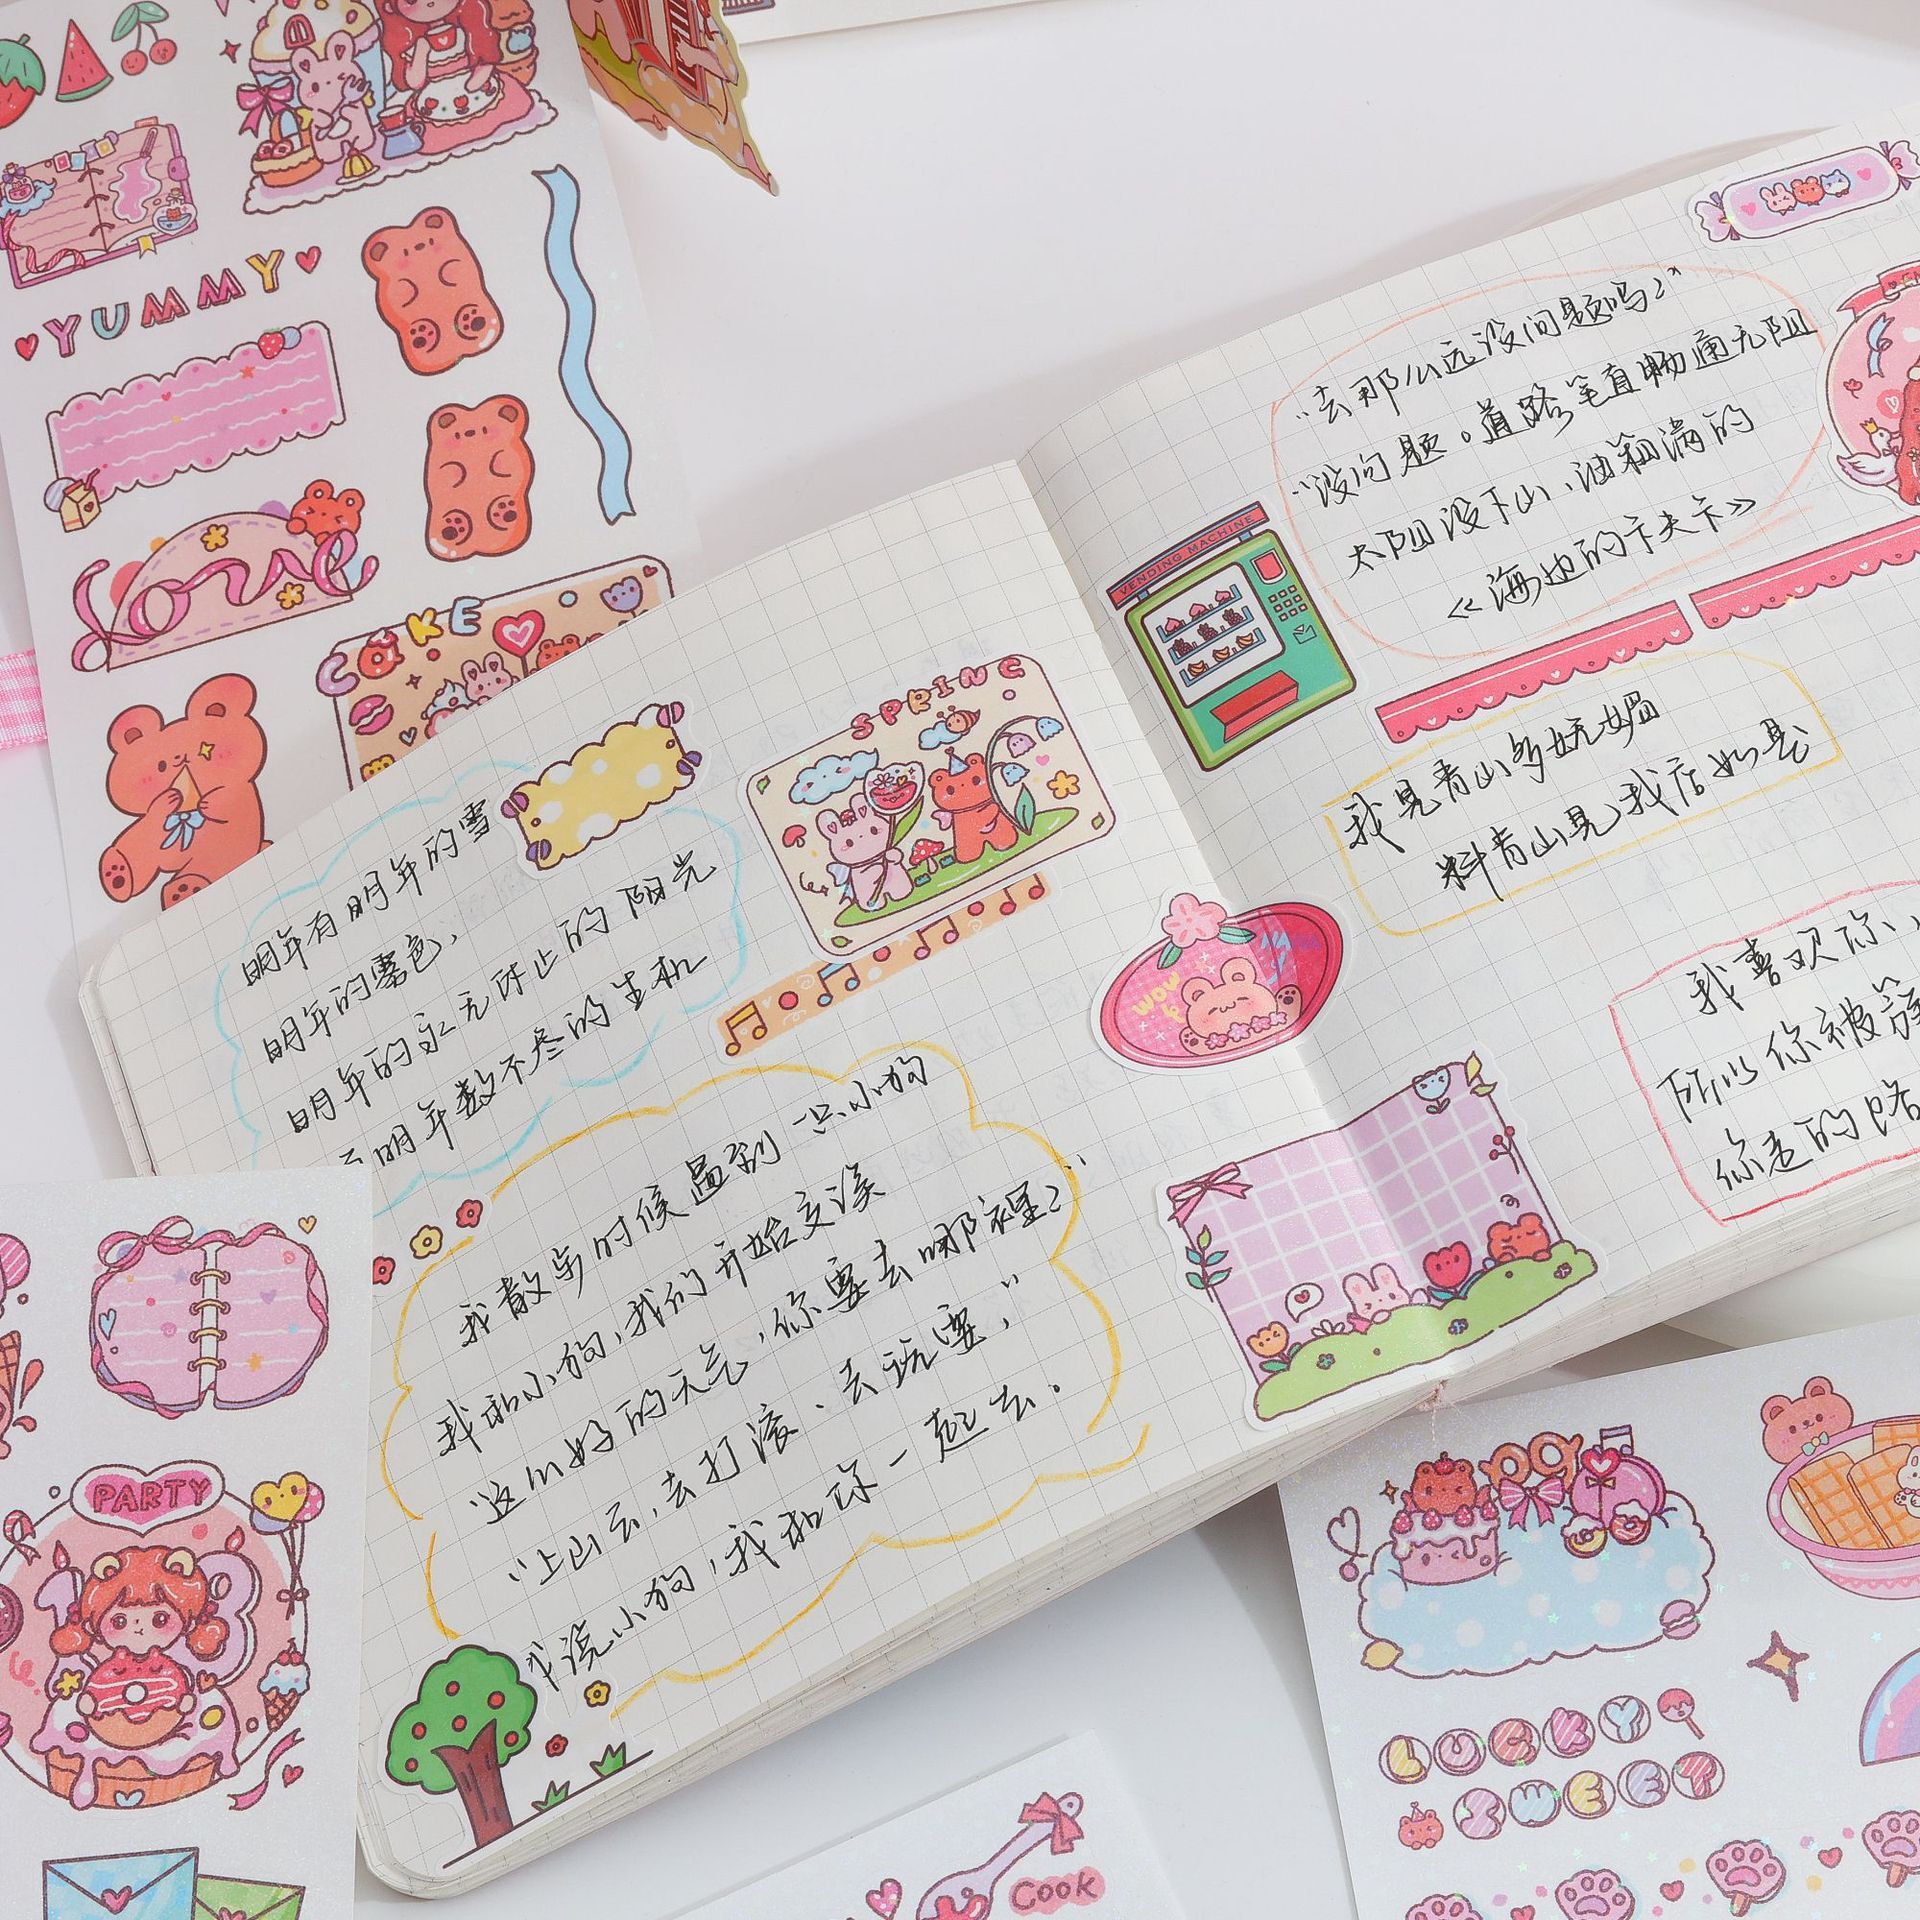 YUMMY
Love
CAKE
明年有明年的雪
明年的雾色,
明年的永无休止的阳光
明年数不尽的生机
SPRING
我散步的时候遇到一只小狗
我和小狗,我们开始交谈
"这么好的天气,你要去哪裡?"
"上山去,去打滚、去玩耍,"
我说小狗,我和你一起去。
"去那么远没问题吗?"
"没问题。道路笔直畅通无阻
太阳没下山、油箱满的
《海边的卡夫卡》
VENDING MACHINE
我见青山多妩媚
料青山见我应如是
WOW
我喜欢你,
所以你被
你走的路
PARTY
LUCKY
SWEET
Cook